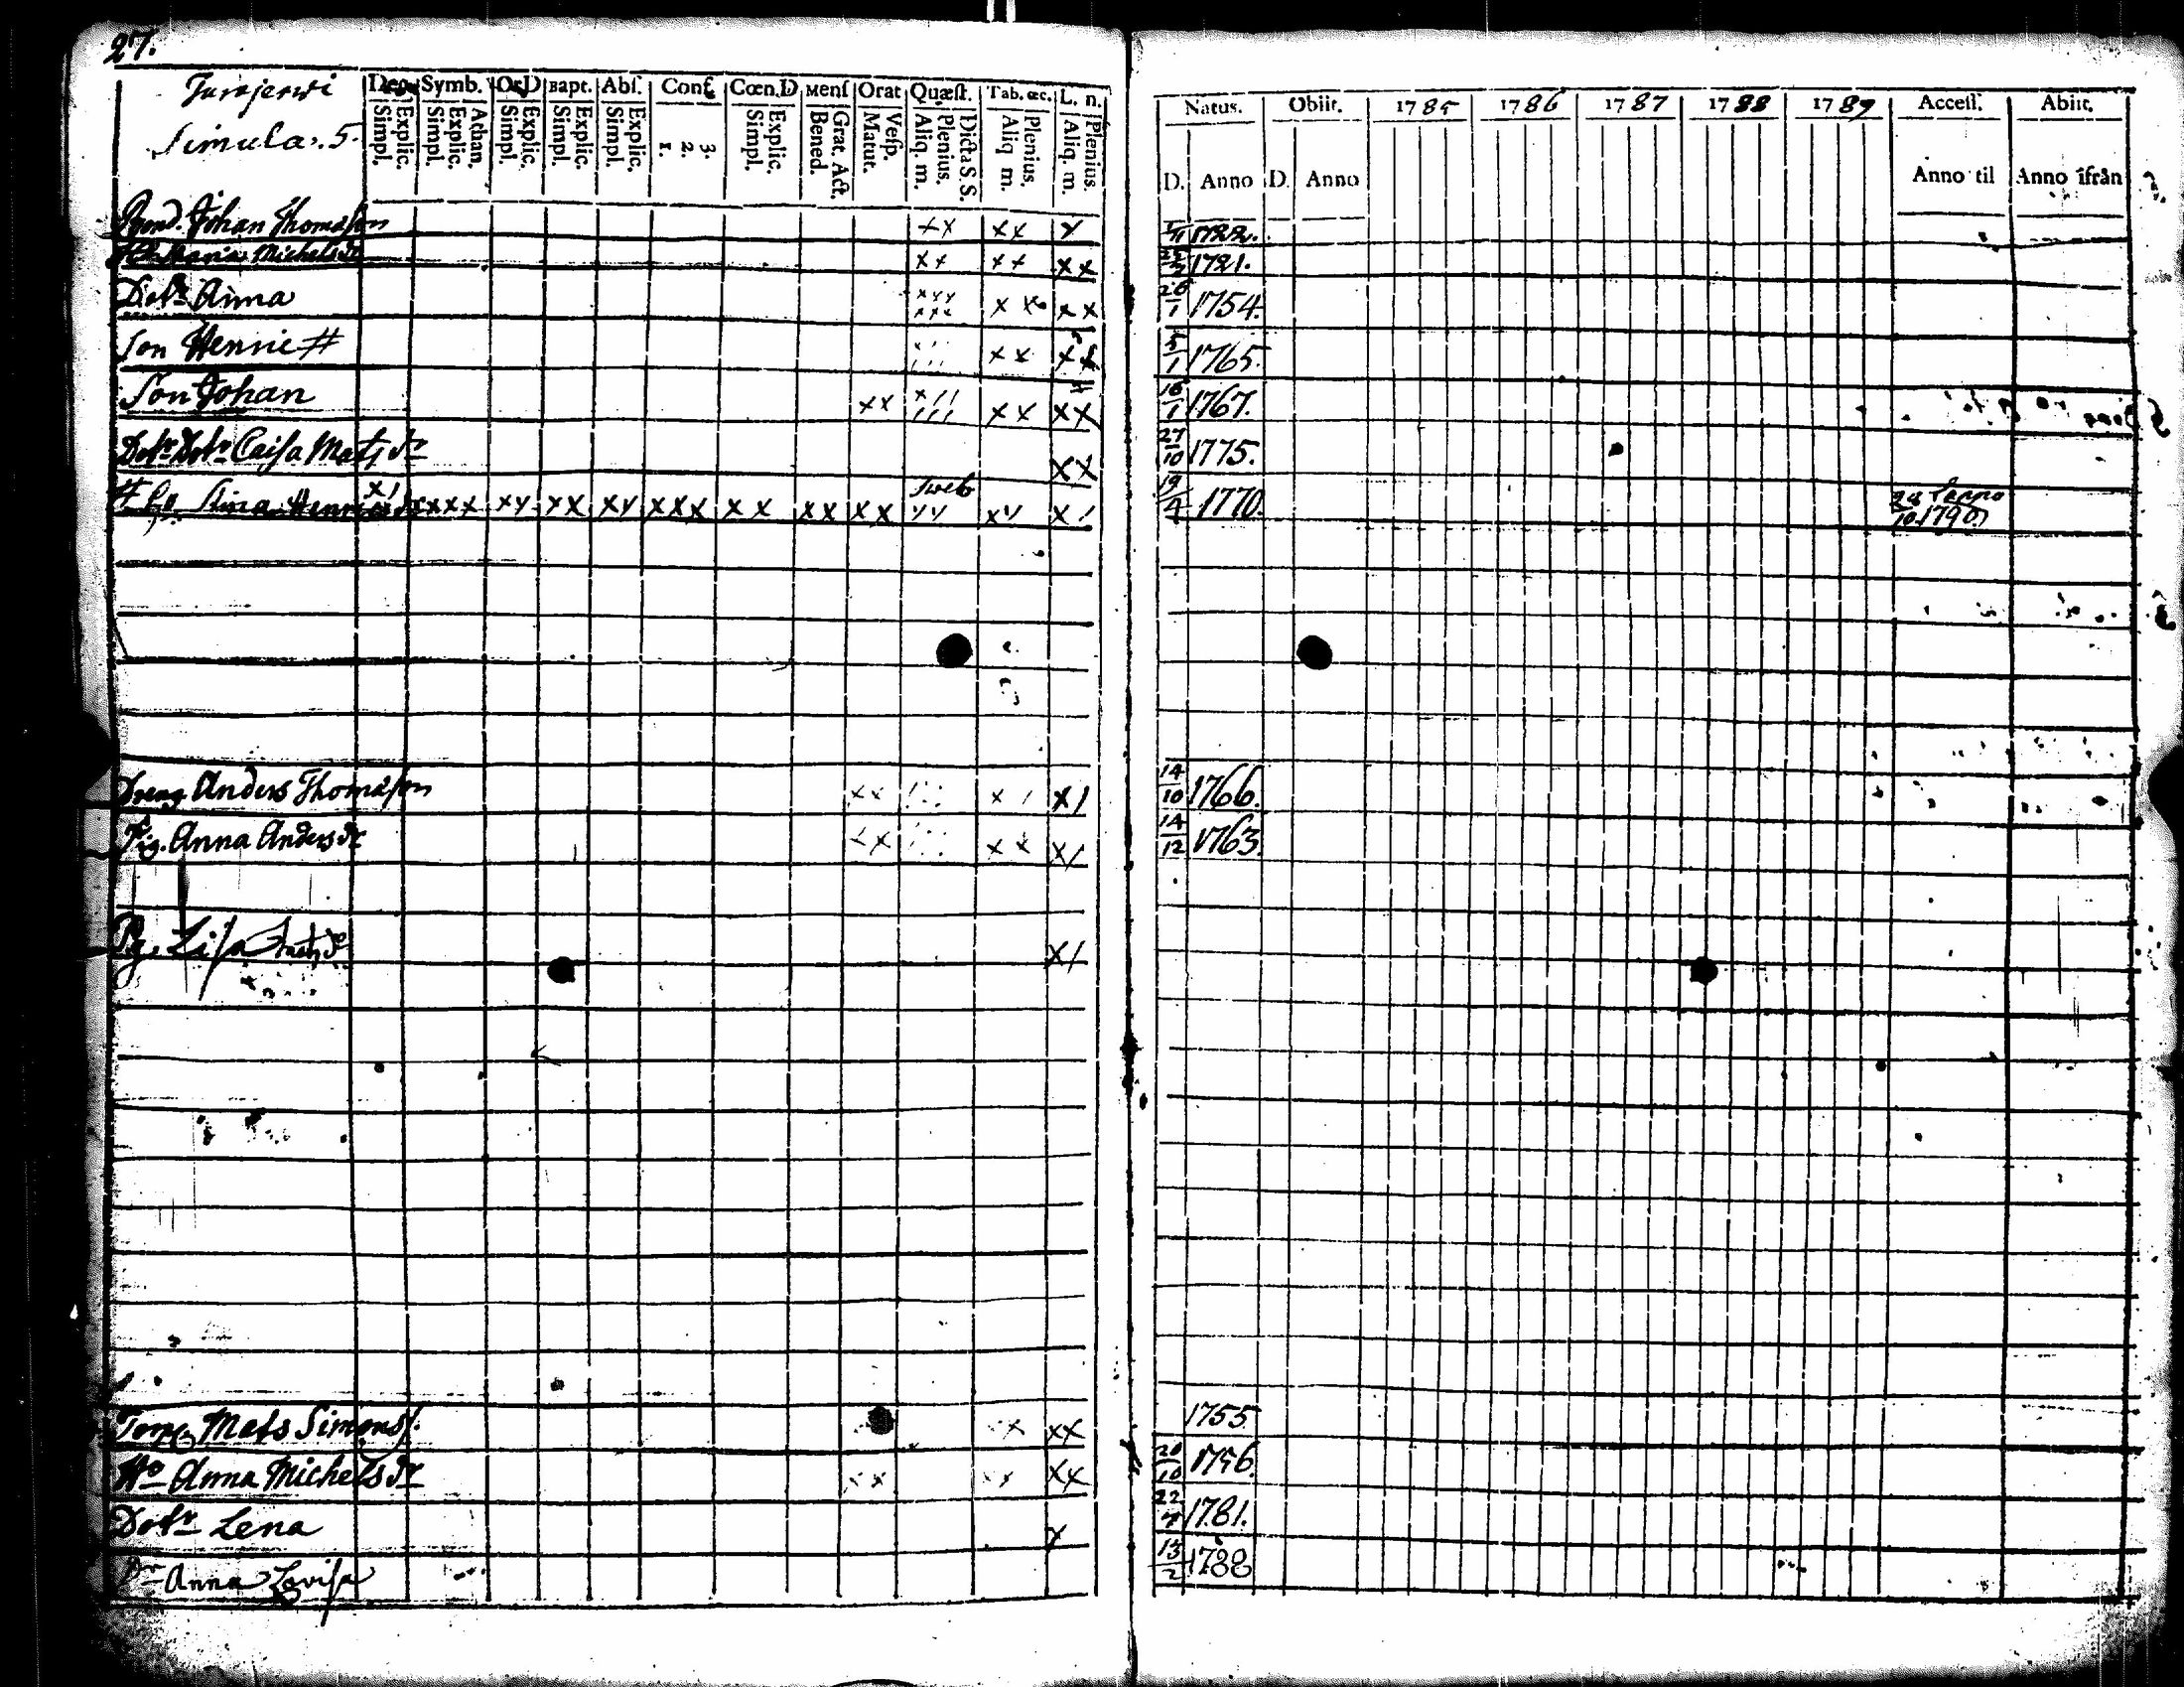 27.
Simula. 5.
Symb. OrD Bapt. Abs. Conf. Cœn.D Mens Orat Quæst. Tab. œc. L. n.
Explic. Simpl. Athan. Explic. Simpl. Explic. Simpl. Explic. Simpl. Explic. Simpl. 3. 2. 1. Explic. Simpl. Grat. Act. Bened. Vesp. Matut. Dicta S.S. Plenius. Aliq. m. Plenius. Aliq m. Plenius. Aliq. m.
Natus. Obiit. 1785 1786 1787 1788 1789 Access. Abiit.
D. Anno D. Anno Anno til Anno ifrån
Bond. Johan Thomasson xx xx x 1722.
Maria Michelsdr xx xx xx 1721.
Dotr Anna xxx xxx x x xx 26/1 1754.
Son Henric # xx xx 5/1 1765.
Son Johan xx x// /// xx xx 16/1 1767.
Dotr Dotr Caisa Matsdr xx 27/10 1775.
# Stina Henricsdr x/ xxx xy xx xy xxx xx xx xx xy x/ 19/4 1770. 1790
Dreng Anders Thomasson xx x / x/ 14/10 1766.
Pig. Anna Andersdr xx xx x/ 14/12 1763.
Pig. Lisa x/
Torp. Mats Simonss. x xx 1755
Ho Anna Michelsdr xx xx xx 20/10 1756.
Dotr Lena x 1781.
Dr Anna Lovisa 13/2 1788